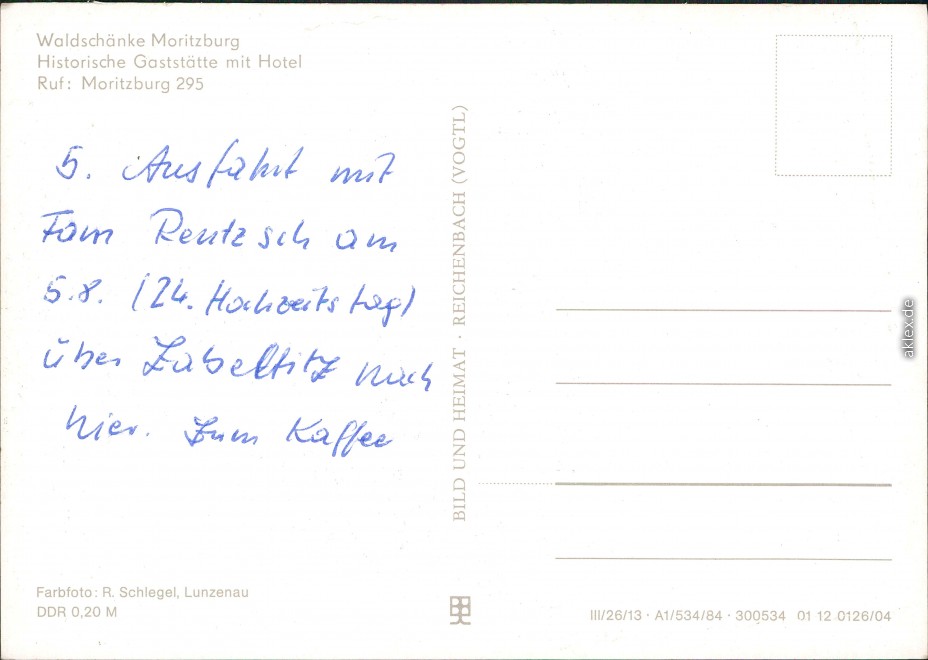 Waldschänke Moritzburg
Historische Gaststätte mit Hotel
Ruf: Moritzburg 295
5. Ausfahrt mit
Fam Rentzsch am
5.8. (24. Hochzeitstag)
über Zabeltitz nach
hier. Zum Kaffee
Farbfoto: R. Schlegel, Lunzenau
DDR 0,20 M
BILD UND HEIMAT · REICHENBACH (VOGTL)
III/26/13 · A1/534/84 · 300534 01 12 0126/04
aklex.de